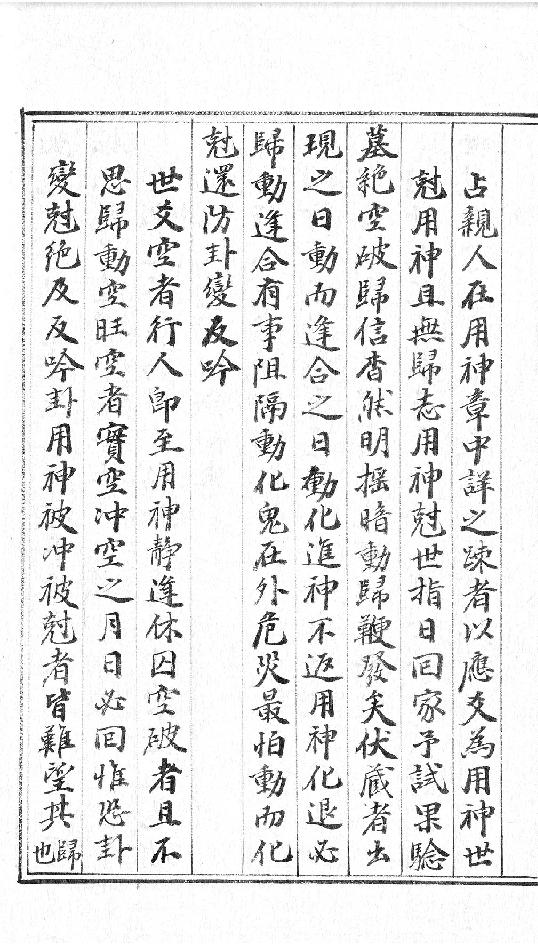 占親人在用神章中詳之疎者以應爻為用神世
尅用神且無歸志用神尅世指日囘家予試果驗
墓絕空破歸信杳然明搖暗動歸鞭發矣伏藏者出
現之日動而逢合之日動化進神不返用神化退必
歸動逢合有事阻隔動化鬼在外危災最怕動而化
尅還防卦變反吟
世爻空者行人即至用神靜逢休囚空破者且不
思歸動空旺空者實空冲空之月日必囘惟恐卦
變尅絕及反吟卦用神被冲被尅者皆難望其歸也